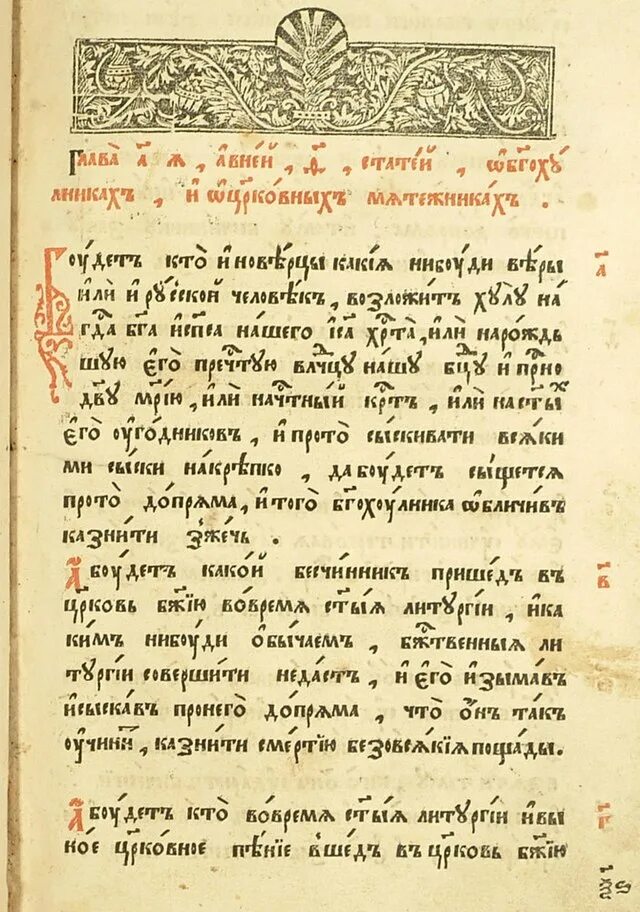 Глава҄ а҃ я , авне́й , ѳ҃ , стате́й , ѡбг҃охꙋ́
лникахъ , и҆ ѡцр҃ко́вныхъ мятежника́хъ .
Боу́детъ кто̀ и҆нове́рцы какі́я нибоу́ди вѣ́ры а҃
и҆лѝ и҆ ру́сской человѣ́къ , возложи́тъ хꙋлꙋ̀ на́
гдⷭ҇а бг҃а и҆ сп҃са на́шего і҆с҃а хрⷭ҇та̀ , и҆лѝ наро́ждь
шую є҆го̀ пречⷭ҇тую влⷣчцꙋ на́шꙋ бцⷣꙋ и҆ прⷭ҇но
дв҃ꙋ мр҃і́ю , и҆лѝ начⷭ҇тны́й крⷭ҇тъ , и҆лѝ насты҃хъ
є҆го̀ оу҆го́дниковъ , и҆ прото̀ сы́скивати вся́ки
ми сы́ски накрѣ́пко , да боу́детъ сы́щется
прото̀ до́пряма , и҆ того̀ бг҃охоу́лника ѡ҆бличи́въ
казни́ти зже́чь .
А҆ боу́детъ како́й бесчи́нникъ прише́дъ въ в҃
цр҃ковь бж҃їю во́время ст҃ы́я литꙋргі́и , и҆ ка
ки́мъ нибоу́ди ѻ҆бы́чаемъ , бжⷭ҇твенныя ли
тꙋргі́и соверши́ти неда́стъ , и҆ є҆го̀ и҆зыма́въ
и҆ сыска́въ про него̀ до́пряма , что̀ ѻ҆́нъ та́къ
оу҆чини́тъ , казни́ти сме́ртїю безовся́кїя поща́ды.
А҆ боу́детъ кто̀ во́время ст҃ы́я литꙋргі́и и҆ вы г҃
но́е цр҃ко́вное пѣ́нїе вше́дъ въ цр҃ковь бж҃їю